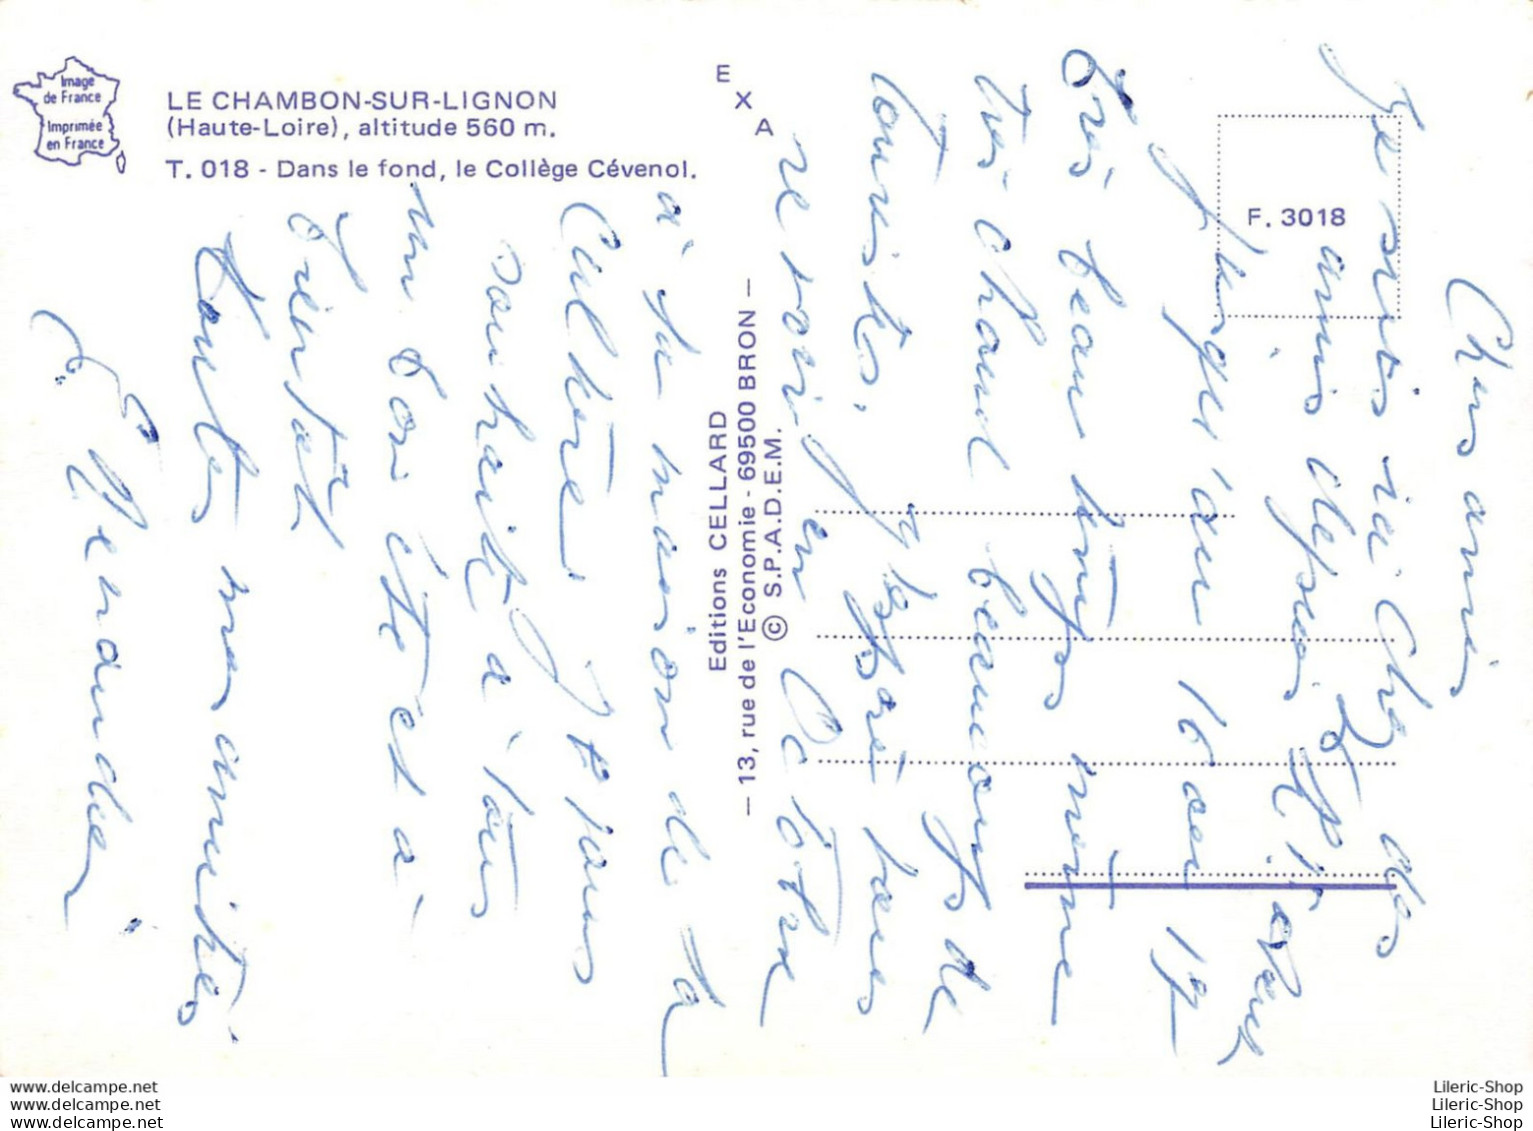 Image
de France
Imprimée
en France
LE CHAMBON-SUR-LIGNON
(Haute-Loire), altitude 560 m.
T. 018 - Dans le fond, le Collège Cévenol.
E
X
A
F. 3018
Editions CELLARD
— 13, rue de l'Economie - 69500 BRON —
© S.P.A.D.E.M.
Chers amis
Je suis ici chez des
amis depuis le
jusqu'au 16 ou 17
Très beau temps même
très chaud beaucoup de
touristes. J'espère vous
revoir en Octobre
à la maison de la
Culture
souhaite à tous
un bon été et à
bientôt
Toutes mes amitiés
www.delcampe.net
www.delcampe.net
www.delcampe.net
Lileric-Shop
Lileric-Shop
Lileric-Shop